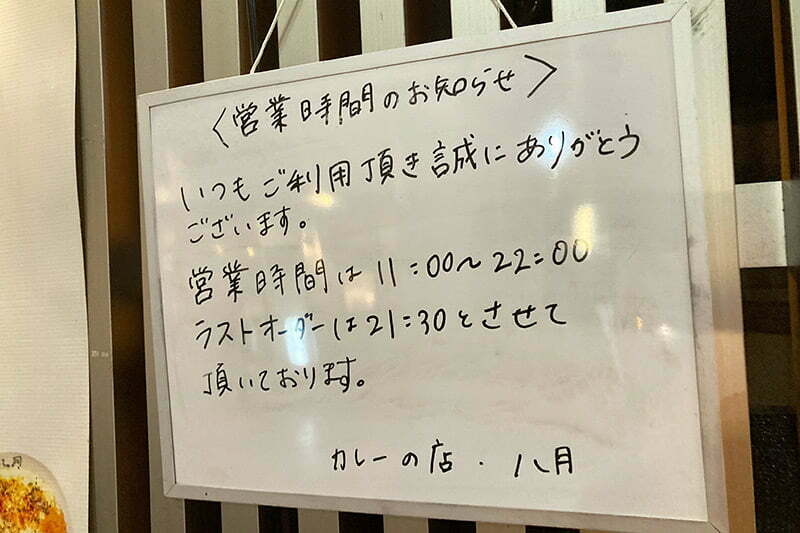 〈営業時間のお知らせ〉
いつもご利用頂き誠にありがとう
ございます。
営業時間は11:00〜22:00
ラストオーダーは21:30とさせて
頂いております。
カレーの店・八月